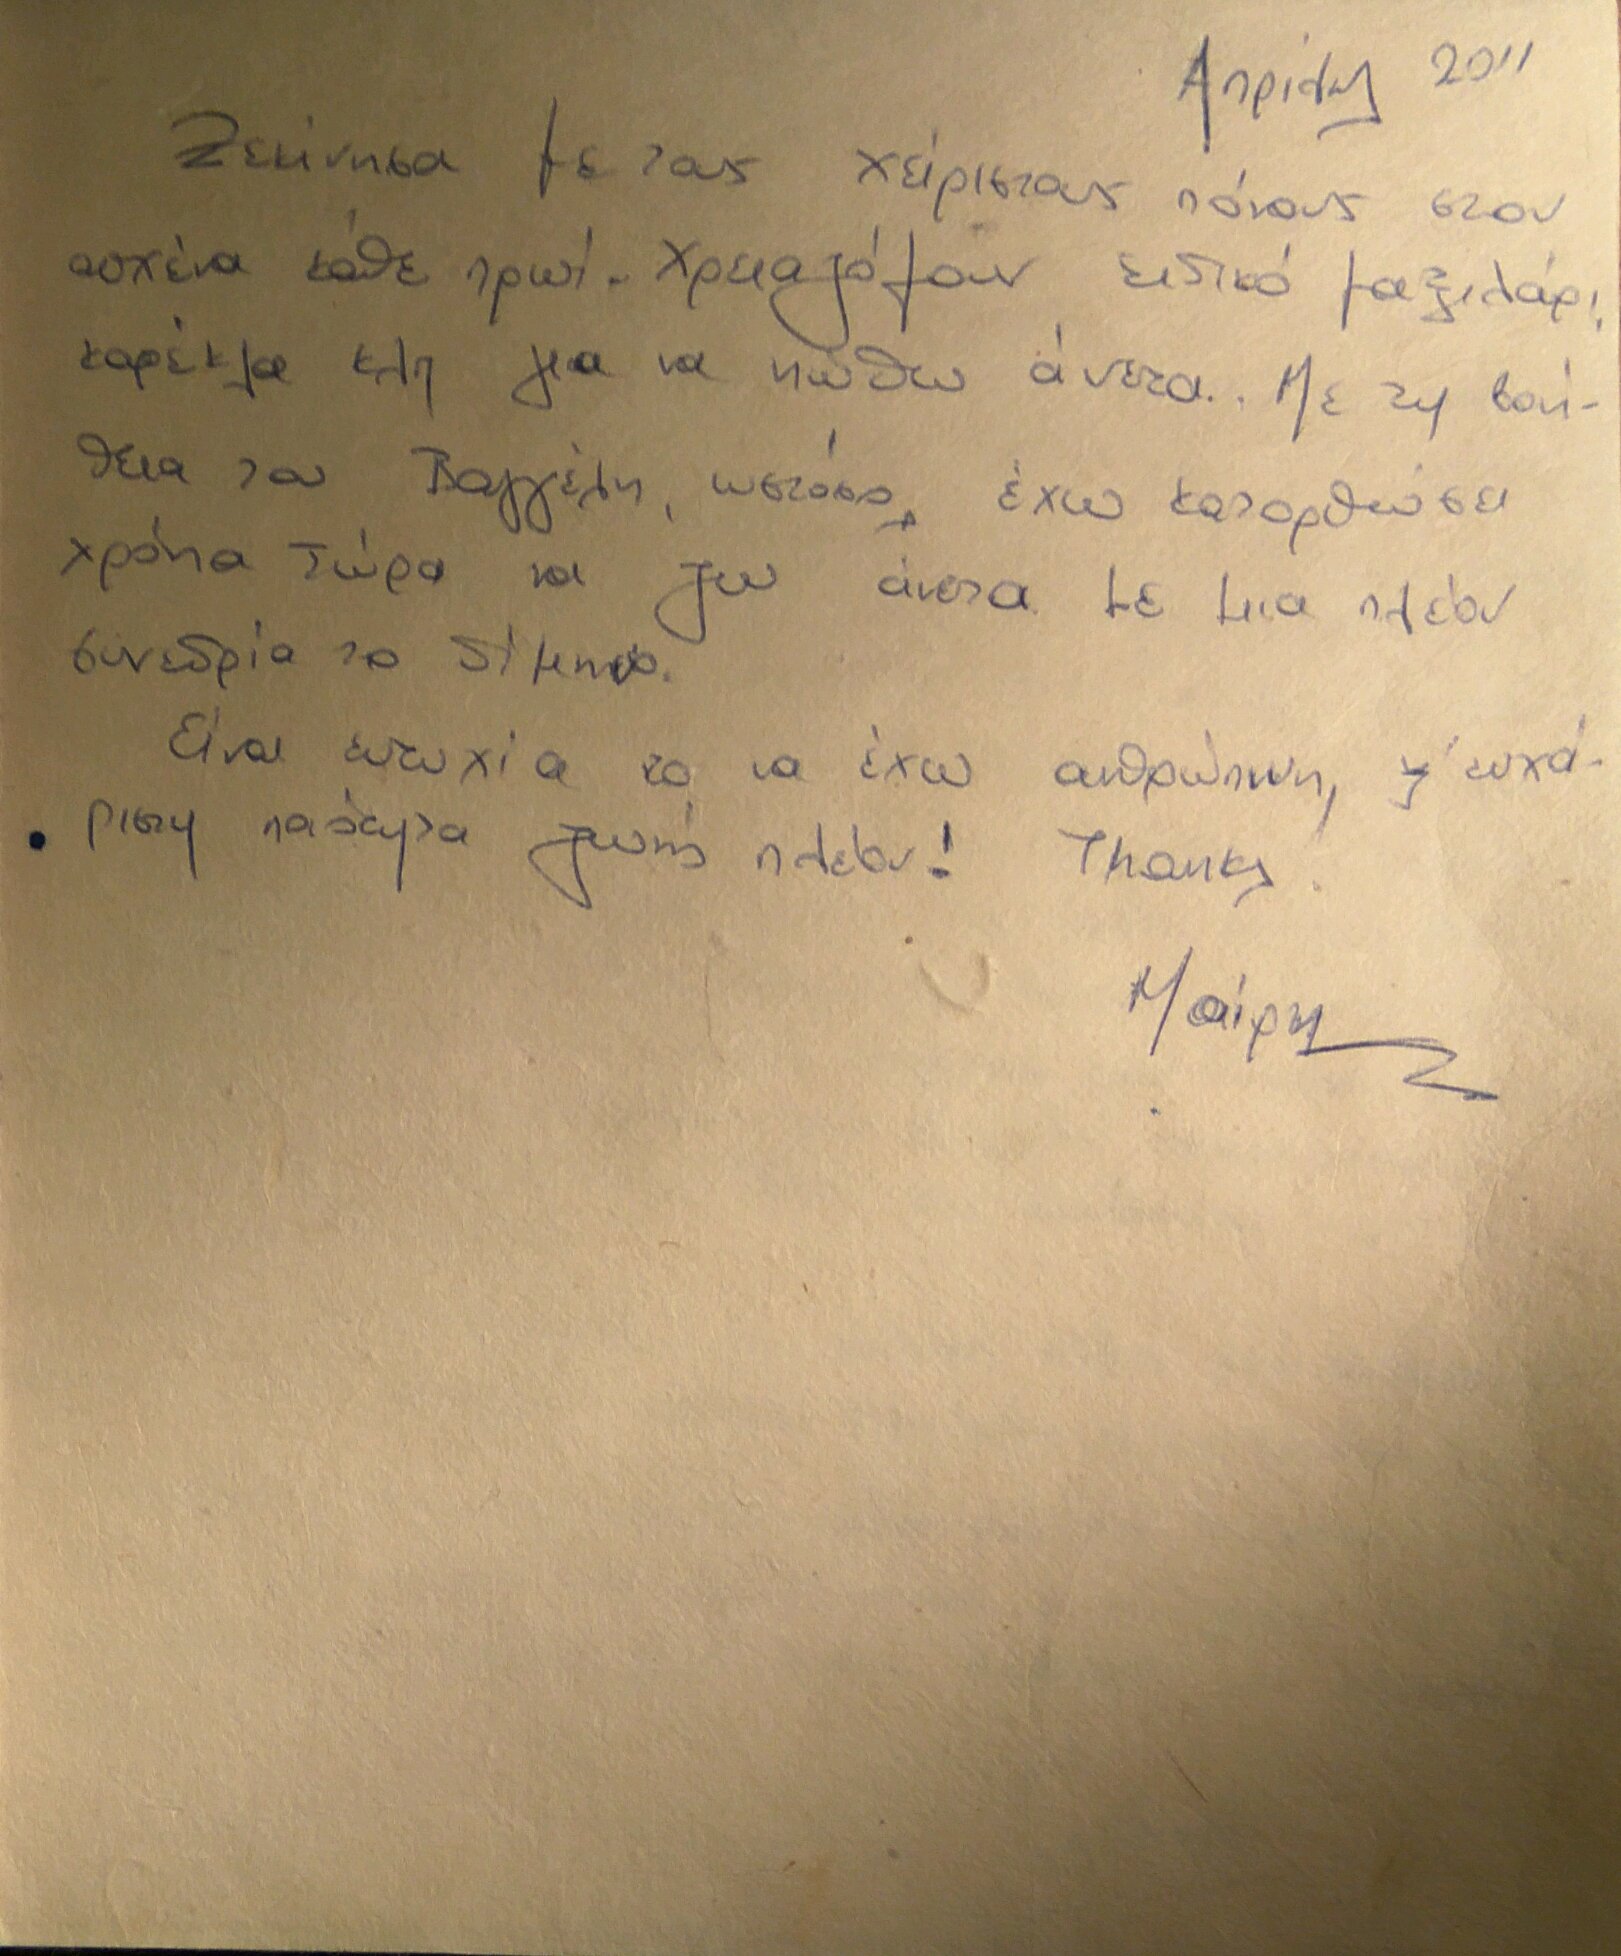 Απρίλης 2011
Ξεκίνησα με τους χείριστους πόνους στον
αυχένα κάθε πρωί. Χρειαζόμουν ειδικό μαξιλάρι,
καρέκλα κλπ για να νιώθω άνετα.. Με τη βοή-
θεια του Βαγγέλη, ωστόσο, έχω κατορθώσει
χρόνια τώρα να ζω άνετα με μια πλέον
συνεδρία το δίμηνο.
Είναι ευτυχία το να έχω ανθρώπινη, κ' ευχά-
ριστη ποιότητα ζωής πλέον! Thanks!
Μαίρη